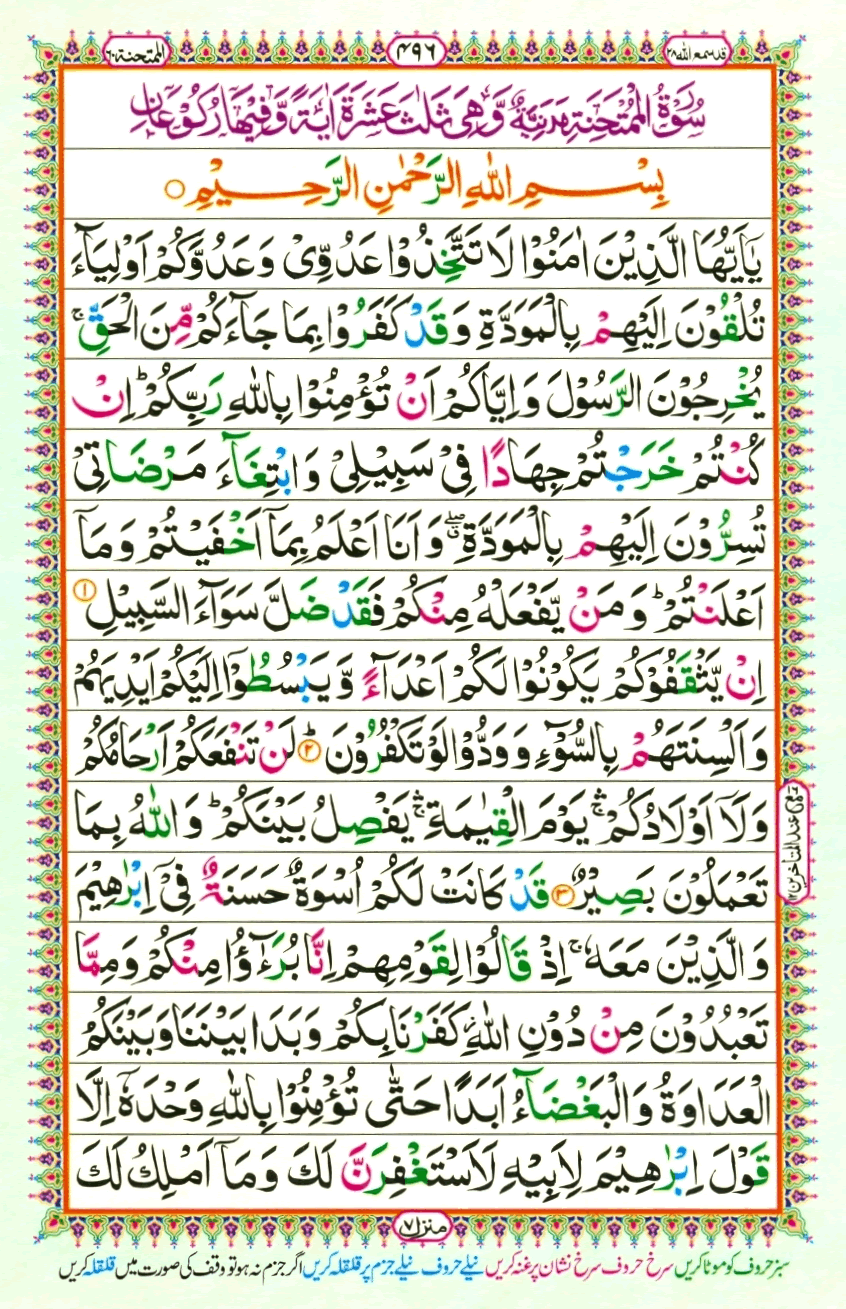 قد سمع الله ٢٨
٤٩٦
الممتحنة ٦٠
سُوْرَةُ الْمُمْتَحِنَةِ مَدَنِيَّةٌ وَّهِيَ ثَلٰثَ عَشَرَةَ اٰيَةً وَّفِيْهَا رُكُوْعَانِ
بِسْمِ اللهِ الرَّحْمٰنِ الرَّحِيْمِ ○
يٰۤاَيُّهَا الَّذِيْنَ اٰمَنُوْا لَا تَتَّخِذُوْا عَدُوِّيْ وَعَدُوَّكُمْ اَوْلِيَآءَ
تُلْقُوْنَ اِلَيْهِمْ بِالْمَوَدَّةِ وَقَدْ كَفَرُوْا بِمَا جَآءَكُمْ مِّنَ الْحَقِّ ۚ
يُخْرِجُوْنَ الرَّسُوْلَ وَاِيَّاكُمْ اَنْ تُؤْمِنُوْا بِاللهِ رَبِّكُمْ ؕ اِنْ
كُنْتُمْ خَرَجْتُمْ جِهَادًا فِيْ سَبِيْلِيْ وَابْتِغَآءَ مَرْضَاتِيْ
تُسِرُّوْنَ اِلَيْهِمْ بِالْمَوَدَّةِ ۖ وَاَنَا اَعْلَمُ بِمَاۤ اَخْفَيْتُمْ وَمَاۤ
اَعْلَنْتُمْ ؕ وَمَنْ يَّفْعَلْهُ مِنْكُمْ فَقَدْ ضَلَّ سَوَآءَ السَّبِيْلِ ①
اِنْ يَّثْقَفُوْكُمْ يَكُوْنُوْا لَكُمْ اَعْدَآءً وَّيَبْسُطُوْۤا اِلَيْكُمْ اَيْدِيَهُمْ
وَاَلْسِنَتَهُمْ بِالسُّوْٓءِ وَوَدُّوْا لَوْ تَكْفُرُوْنَ ؕ② لَنْ تَنْفَعَكُمْ اَرْحَامُكُمْ
وَلَاۤ اَوْلَادُكُمْ ۛۚ يَوْمَ الْقِيٰمَةِ ۛۚ يَفْصِلُ بَيْنَكُمْ ؕ وَاللهُ بِمَا
تَعْمَلُوْنَ بَصِيْرٌ ③ قَدْ كَانَتْ لَكُمْ اُسْوَةٌ حَسَنَةٌ فِيْۤ اِبْرٰهِيْمَ
وَالَّذِيْنَ مَعَهٗ ۚ اِذْ قَالُوْا لِقَوْمِهِمْ اِنَّا بُرَءٰٓؤُا مِنْكُمْ وَمِمَّا
تَعْبُدُوْنَ مِنْ دُوْنِ اللهِ ؗ كَفَرْنَا بِكُمْ وَبَدَا بَيْنَنَا وَبَيْنَكُمُ
الْعَدَاوَةُ وَالْبَغْضَآءُ اَبَدًا حَتّٰى تُؤْمِنُوْا بِاللهِ وَحْدَهٗۤ اِلَّا
قَوْلَ اِبْرٰهِيْمَ لِاَبِيْهِ لَاَسْتَغْفِرَنَّ لَكَ وَمَاۤ اَمْلِكُ لَكَ
منزل ٧
سبز حروف کو موٹا کریں سرخ حروف سرخ نشان پر غنہ کریں نیلے حروف نیلے جزم پر قلقلہ کریں اگر جزم نہ ہو تو وقف کی صورت میں قلقلہ کریں